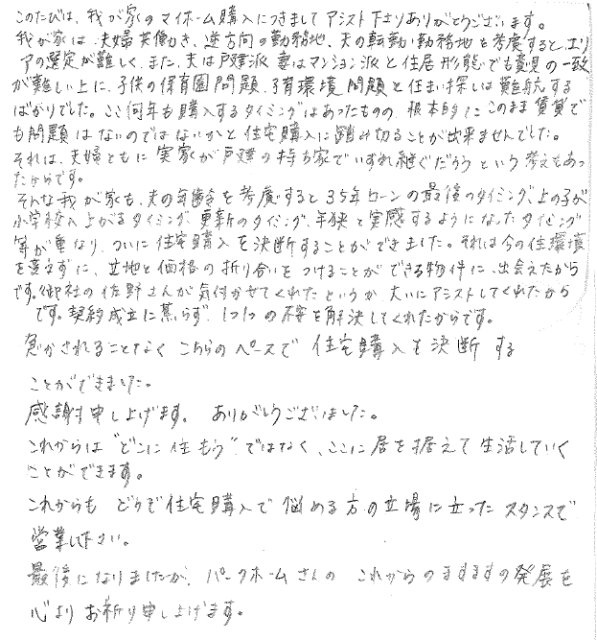 このたびは、我が家のマイホーム購入につきましてアシスト下さりありがとうございます。
我が家は、夫婦共働き、逆方向の勤務地、夫の転勤・勤務地を考慮すると、エリ
アの選定が難しく、また、夫は戸建派 妻はマンション派と住居形態でも意見の一致
が難しい上に、子供の保育園問題、子育環境問題と住まい探しは難航する
ばかりでした。ここ何年も購入するタイミングはあったものの、根本的にこのまま賃貸で
も問題はないのではないかと住宅購入に踏み切ることが出来ませんでした。
それは、夫婦ともに実家が戸建の持ち家でいずれ継ぐだろうという考えもあっ
たからです。
そんな我が家も、夫の年齢を考慮すると35年ローンの最後のタイミング、上の子が
小学校へ上がるタイミング、更新のタイミング、手狭と実感するようになったタイミング
等が重なり、ついに住宅購入を決断することができました。それは今の住環境
を変えずに、立地と価格の折り合いをつけることができる物件に、出会えたから
です。御社の佐野さんが気付かせてくれたというか、大いにアシストしてくれたから
です。契約成立に焦らず、1つ1つの不安を解決してくれたからです。
急かされることなく こちらのペースで 住宅購入を決断する
ことができました。
感謝申し上げます。 ありがとうございました。
これからは"どこに住もう"ではなく、ここに居を据えて生活していく
ことができます。
これからも どうぞ住宅購入で悩める方の立場に立ったスタンスで
営業し下さい。
最後になりましたが、パークホームさんの これからのますますの発展を
心よりお祈り申し上げます。